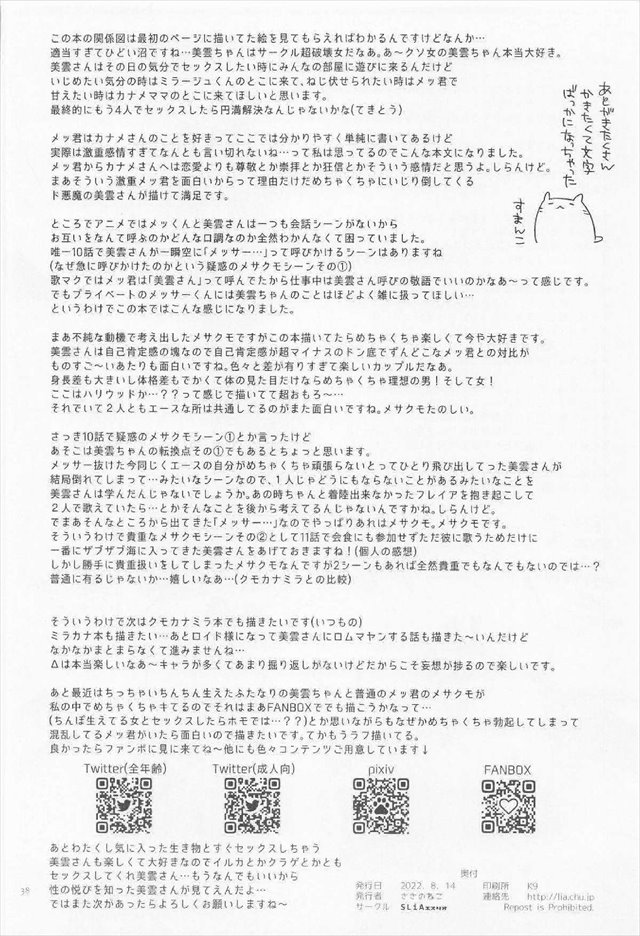 この本の関係図は最初のページに描いてた絵を見てもらえればわかるんですけどなんか…
適当すぎてひどい沼ですね…美雲ちゃんはサークル超破壊女だなあ。あ～クソ女の美雲ちゃん本当大好き。
美雲さんはその日の気分でセックスしたい時にみんなの部屋に遊びに来るんだけど
いじめたい気分の時はミラージュくんのとこに来て、ねじ伏せられたい時はメッ君で
甘えたい時はカナメママのとこに来てほしいと思います。
最終的にもう4人でセックスしたら円満解決なんじゃないかな(てきとう)
あとがきたくさん
かきたくて文字
ばっかになっちゃった
すまんこ
メッ君はカナメさんのことを好きってここでは分かりやすく単純に書いてあるけど
実際は激重感情すぎてなんとも言い切れないね…って私は思ってるのでこんな本文になりました。
メッ君からカナメさんへは恋愛よりも尊敬とか崇拝とか狂信とかそういう感情だと思うよ。しらんけど。
まあそういう激重メッ君を面白いからって理由だけだめちゃくちゃにいじり倒してくる
ド悪魔の美雲さんが描けて満足です。
ところでアニメではメッくんと美雲さんは一つも会話シーンがないから
お互いをなんて呼ぶのかどんな口調なのか全然わかんなくて困っていました。
唯一10話で美雲さんが一瞬空に「メッサー…」って呼びかけるシーンはありますね
(なぜ急に呼びかけたのかという疑惑のメサクモシーンその①)
歌マクではメッ君は「美雲さん」って呼んでたから仕事中は美雲さん呼びの敬語でいいのかなあ～って感じです。
でもプライベートのメッサーくんには美雲ちゃんのことはほどよく雑に扱ってほしい…
というわけでこの本ではこんな感じになりました。
まあ不純な動機で考え出したメサクモですがこの本描いてたらめちゃくちゃ楽しくて今や大好きです。
美雲さんは自己肯定感の塊なので自己肯定感が超マイナスのドン底でずんどこなメッ君との対比が
ものすご～いあたりも面白いですね。色々と差が有りすぎて楽しいカップルだなあ。
身長差も大きいし体格差もでかくて体の見た目だけならめちゃくちゃ理想の男！そして女！
ここはハリウッドか…？？って感じで描いてて超おもろ～…
それでいて２人ともエースな所は共通してるのがまた面白いですね。メサクモたのしい。
さっき10話で疑惑のメサクモシーン①とか言ったけど
あそこは美雲ちゃんの転換点その①でもあるとちょっと思います。
メッサー抜けた今同じくエースの自分がめちゃくちゃ頑張らないとってひとり飛び出してった美雲さんが
結局倒れてしまって…みたいなシーンなので、１人じゃどうにもならないことがあるみたいなことを
美雲さんは学んだんじゃないでしょうか。あの時ちゃんと着陸出来なかったフレイアを抱き起こして
２人で歌えていたら…とかそんなことを後から考えてるんじゃないんですかね。しらんけど。
でまあそんなところから出てきた「メッサー…」なのでやっぱりあれはメサクモ。メサクモです。
そういうわけで貴重なメサクモシーンその②として11話で会食にも参加せずただ彼に歌うためだけに
一番にザブザブ海に入ってきた美雲さんをあげておきますね！(個人の感想)
しかし勝手に貴重扱いをしてしまったメサクモなんですが2シーンもあれば全然貴重でもなんでもないのでは…？
普通に有るじゃないか…嬉しいなあ…(クモカナミラとの比較)
そういうわけで次はクモカナミラ本でも描きたいです(いつもの)
ミラカナ本も描きたい…あとロイド様になって美雲さんにロムマヤンする話も描きた～いんだけど
なかなかまとまらなくて進みませんね…
Δは本当楽しいなあ～キャラが多くてあまり掘り返しがないけどだからこそ妄想が捗るので楽しいです。
あと最近はちっちゃいちんちん生えたふたなりの美雲さんと普通のメッ君のメサクモが
私の中でめちゃくちゃキてるのでそれはまあFANBOXででも描こうかなって…
(ちんぽ生えてる女とセックスしたらホモでは…？？)とか思いながらもなぜかめちゃくちゃ勃起してしまって
混乱してるメッ君がいたら面白いので描きたいです。てかもうラフ描いてる。
良かったらファンボに見に来てね～他にも色々コンテンツご用意しています↓
Twitter(全年齢)
Twitter(成人向)
pixiv
FANBOX
あとわたくし気に入った生き物とすぐセックスしちゃう
美雲さんも楽しくて大好きなのでイルカとかクラゲとかとも
セックスしてくれ美雲さん…もうなんでもいいから
性の悦びを知った美雲さんが見てえんだよ…
ではまた次があったらよろしくお願いしますね～
奥付
発行日 2022. 8. 14 印刷所 K9
発行者 ささのねこ 連絡先 http://lia.chu.jp
サークル SLiA
Repost is Prohibited.
38